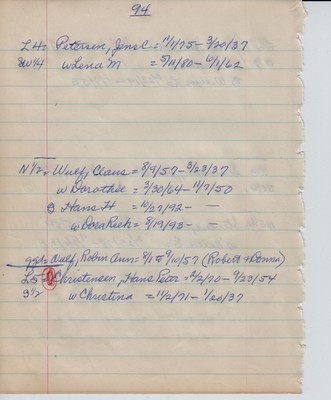 94
L4½ Petersen, Jens C. = 11/1/75 - 3/20/37
SW 1/4 w Lena M = 5/11/80 - 10/1/62
N 1/2 Wulf, Claus = 8/9/57 - 3/23/37
w Dorothee = 3/30/64 - 11/7/50
Hans H = 10/27/92 - —
w Dora Rich = 8/19/93 - —
Wulf, Robin Ann = 8/1 9/10/57 (Robert & Donna)
L5 Christensen, Hans Peter = 2/2/70 - 9/23/54
S 1/2 w Christina = 11/2/71 - 1/20/37